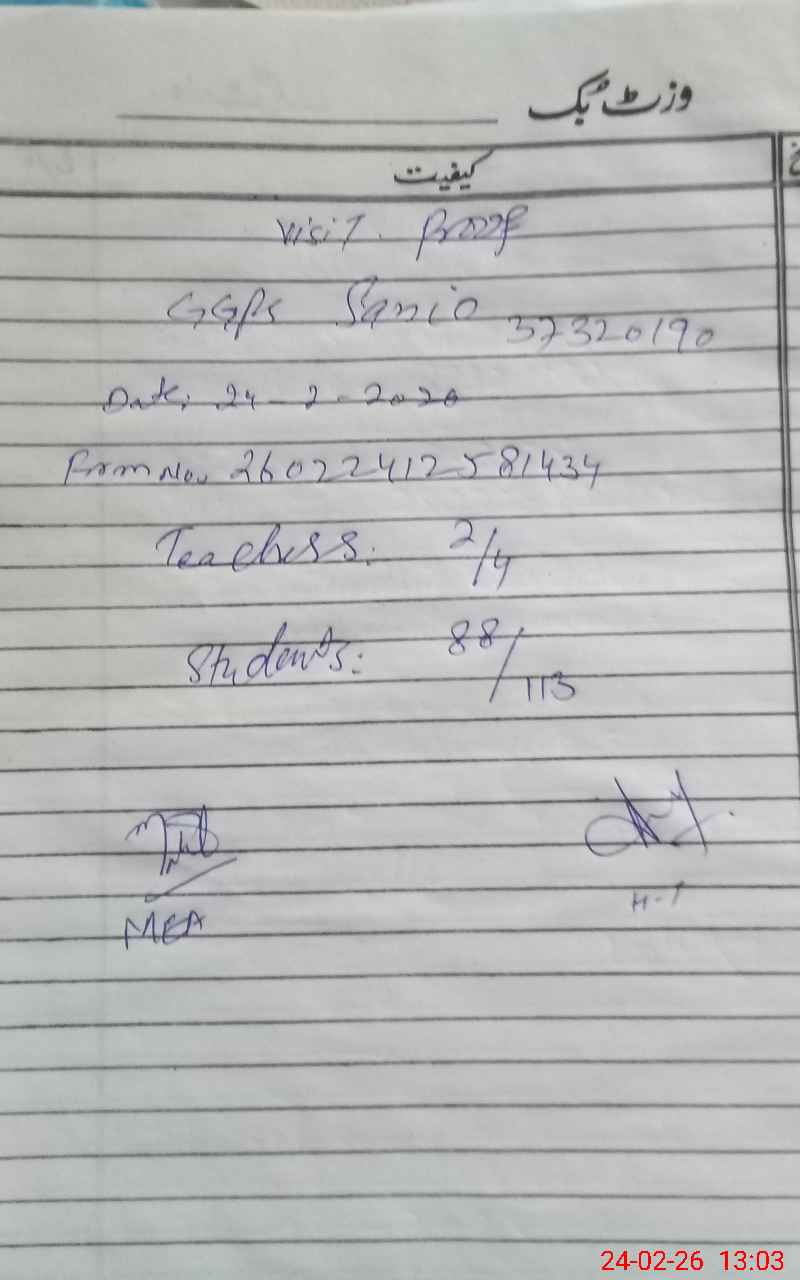 وزٹ بک
کیفیت
Visit Proof
GGPS Sanio 37320190
Date: 24-2-2026
Form No. 26022412581434
Teachers: 2/4
Students: 88/113
MEA
H-T
24-02-26 13:03